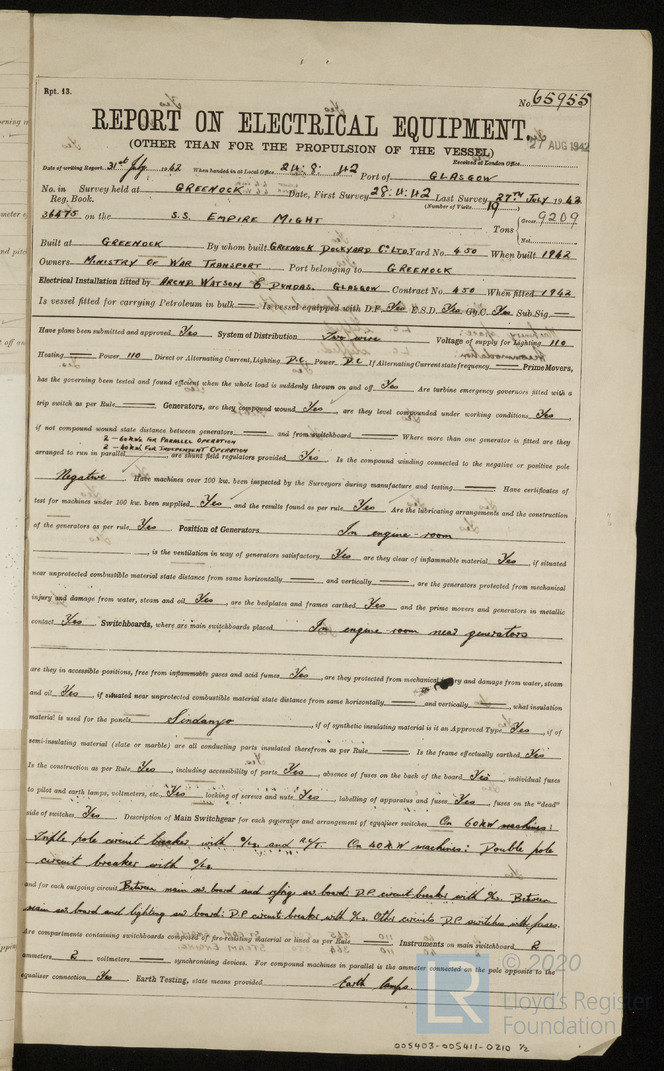 Rpt. 13.
No. 65955
REPORT ON ELECTRICAL EQUIPMENT.
(OTHER THAN FOR THE PROPULSION OF THE VESSEL)
27 AUG 1942
Date of writing Report 31st July 1942 When handed in at Local Office 24.8.42 Port of GLASGOW Received at London Office
No. in Survey held at GREENOCK Date, First Survey 28.4.42 Last Survey 27TH JULY 1942
Reg. Book. (Number of Visits 19)
36475 on the S.S. EMPIRE MIGHT Tons { Gross 9209 Net
Built at GREENOCK By whom built GREENOCK DOCKYARD Co. LTD. Yard No. 450 When built 1942
Owners MINISTRY OF WAR TRANSPORT Port belonging to GREENOCK
Electrical Installation fitted by ARCHD. WATSON & DUNDAS. GLASGOW Contract No. 450 When fitted 1942
Is vessel fitted for carrying Petroleum in bulk — Is vessel equipped with D.F. Yes E.S.D. Yes Gy.C. Yes Sub.Sig. —
Have plans been submitted and approved Yes System of Distribution Two wire Voltage of supply for Lighting 110
Heating — Power 110 Direct or Alternating Current, Lighting D.C. Power D.C. If Alternating Current state frequency — Prime Movers,
has the governing been tested and found efficient when the whole load is suddenly thrown on and off Yes Are turbine emergency governors fitted with a
trip switch as per Rule — Generators, are they compound wound Yes, are they level compounded under working conditions Yes,
if not compound wound state distance between generators — and from switchboard — Where more than one generator is fitted are they
2 - 60 KW. FOR PARALLEL OPERATION
2 - 40 KW. FOR INDEPENDENT OPERATION
arranged to run in parallel, are shunt field regulators provided Yes Is the compound winding connected to the negative or positive pole
Negative Have machines over 100 kw. been inspected by the Surveyors during manufacture and testing — Have certificates of
test for machines under 100 kw. been supplied Yes and the results found as per rule Yes Are the lubricating arrangements and the construction
of the generators as per rule Yes Position of Generators In engine-room
, is the ventilation in way of generators satisfactory Yes are they clear of inflammable material Yes, if situated
near unprotected combustible material state distance from same horizontally — and vertically —, are the generators protected from mechanical
injury and damage from water, steam and oil Yes, are the bedplates and frames earthed Yes and the prime movers and generators in metallic
contact Yes Switchboards, where are main switchboards placed In engine room near generators
are they in accessible positions, free from inflammable gases and acid fumes Yes, are they protected from mechanical injury and damage from water, steam
and oil Yes, if situated near unprotected combustible material state distance from same horizontally — and vertically —, what insulation
material is used for the panels Sindanyo, if of synthetic insulating material is it an Approved Type Yes, if of
semi-insulating material (slate or marble) are all conducting parts insulated therefrom as per Rule — Is the frame effectually earthed Yes
Is the construction as per Rule Yes, including accessibility of parts Yes, absence of fuses on the back of the board Yes, individual fuses
to pilot and earth lamps, voltmeters, etc. Yes locking of screws and nuts Yes, labelling of apparatus and fuses Yes, fuses on the "dead"
side of switches Yes Description of Main Switchgear for each generator and arrangement of equaliser switches On 60KW machines:
Triple pole circuit breaker with o/Ls. and R.C/T. On 40KW machines: Double pole
circuit breaker with o/Ls.
and for each outgoing circuit Between main sw. board and refrig sw. board: D.P. circuit breaker with o/Ls. Between
main sw. board and lighting sw. board: D.P. circuit breaker with o/Ls. Other circuits D.P. switches with fuses.
Are compartments containing switchboards composed of fire-resisting material or lined as per Rule — Instruments on main switchboard 2
ammeters 2 voltmeters — synchronising devices. For compound machines in parallel is the ammeter connected on the pole opposite to the
equaliser connection Yes Earth Testing, state means provided Earth lamps
© 2020
LR
Lloyd's Register
Foundation
005403-005411-0210 1/2